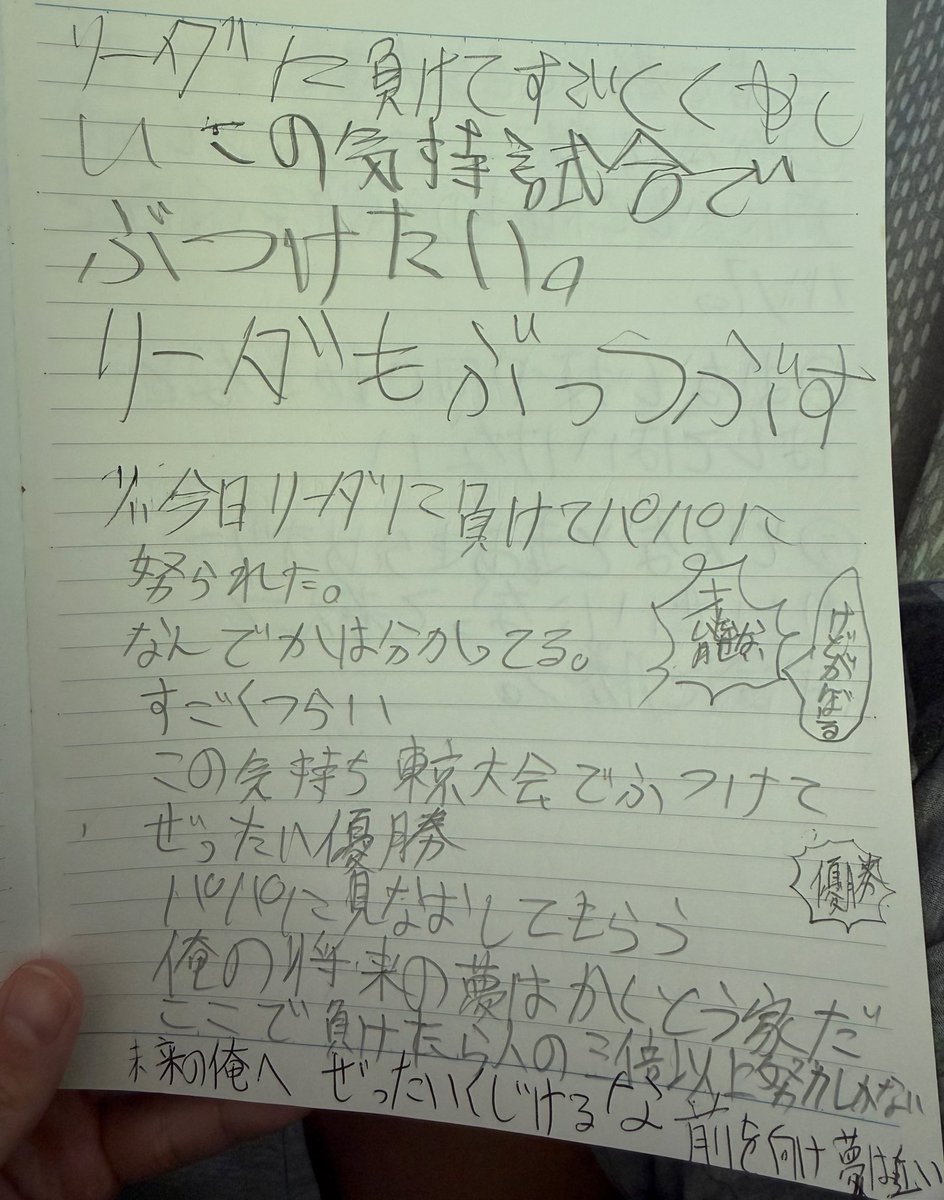 リーダに負けてすごくくやし
いこの気持試合で
ぶつけたい。
リーダもぶっつぶす
今日リーダに負けてパパに
努られた。
なんでかは分かってる。
才能ない
けどがんばる
すごくつらい
この気持ち東京大会でぶつけて
ぜったい優勝
優勝
パパに見なおしてもらう
俺の将来の夢はかくとう家だ
ここで負けたら人の三倍以上努力しかない
未来の俺へ ぜったいくじけるな 前を向け夢は近い